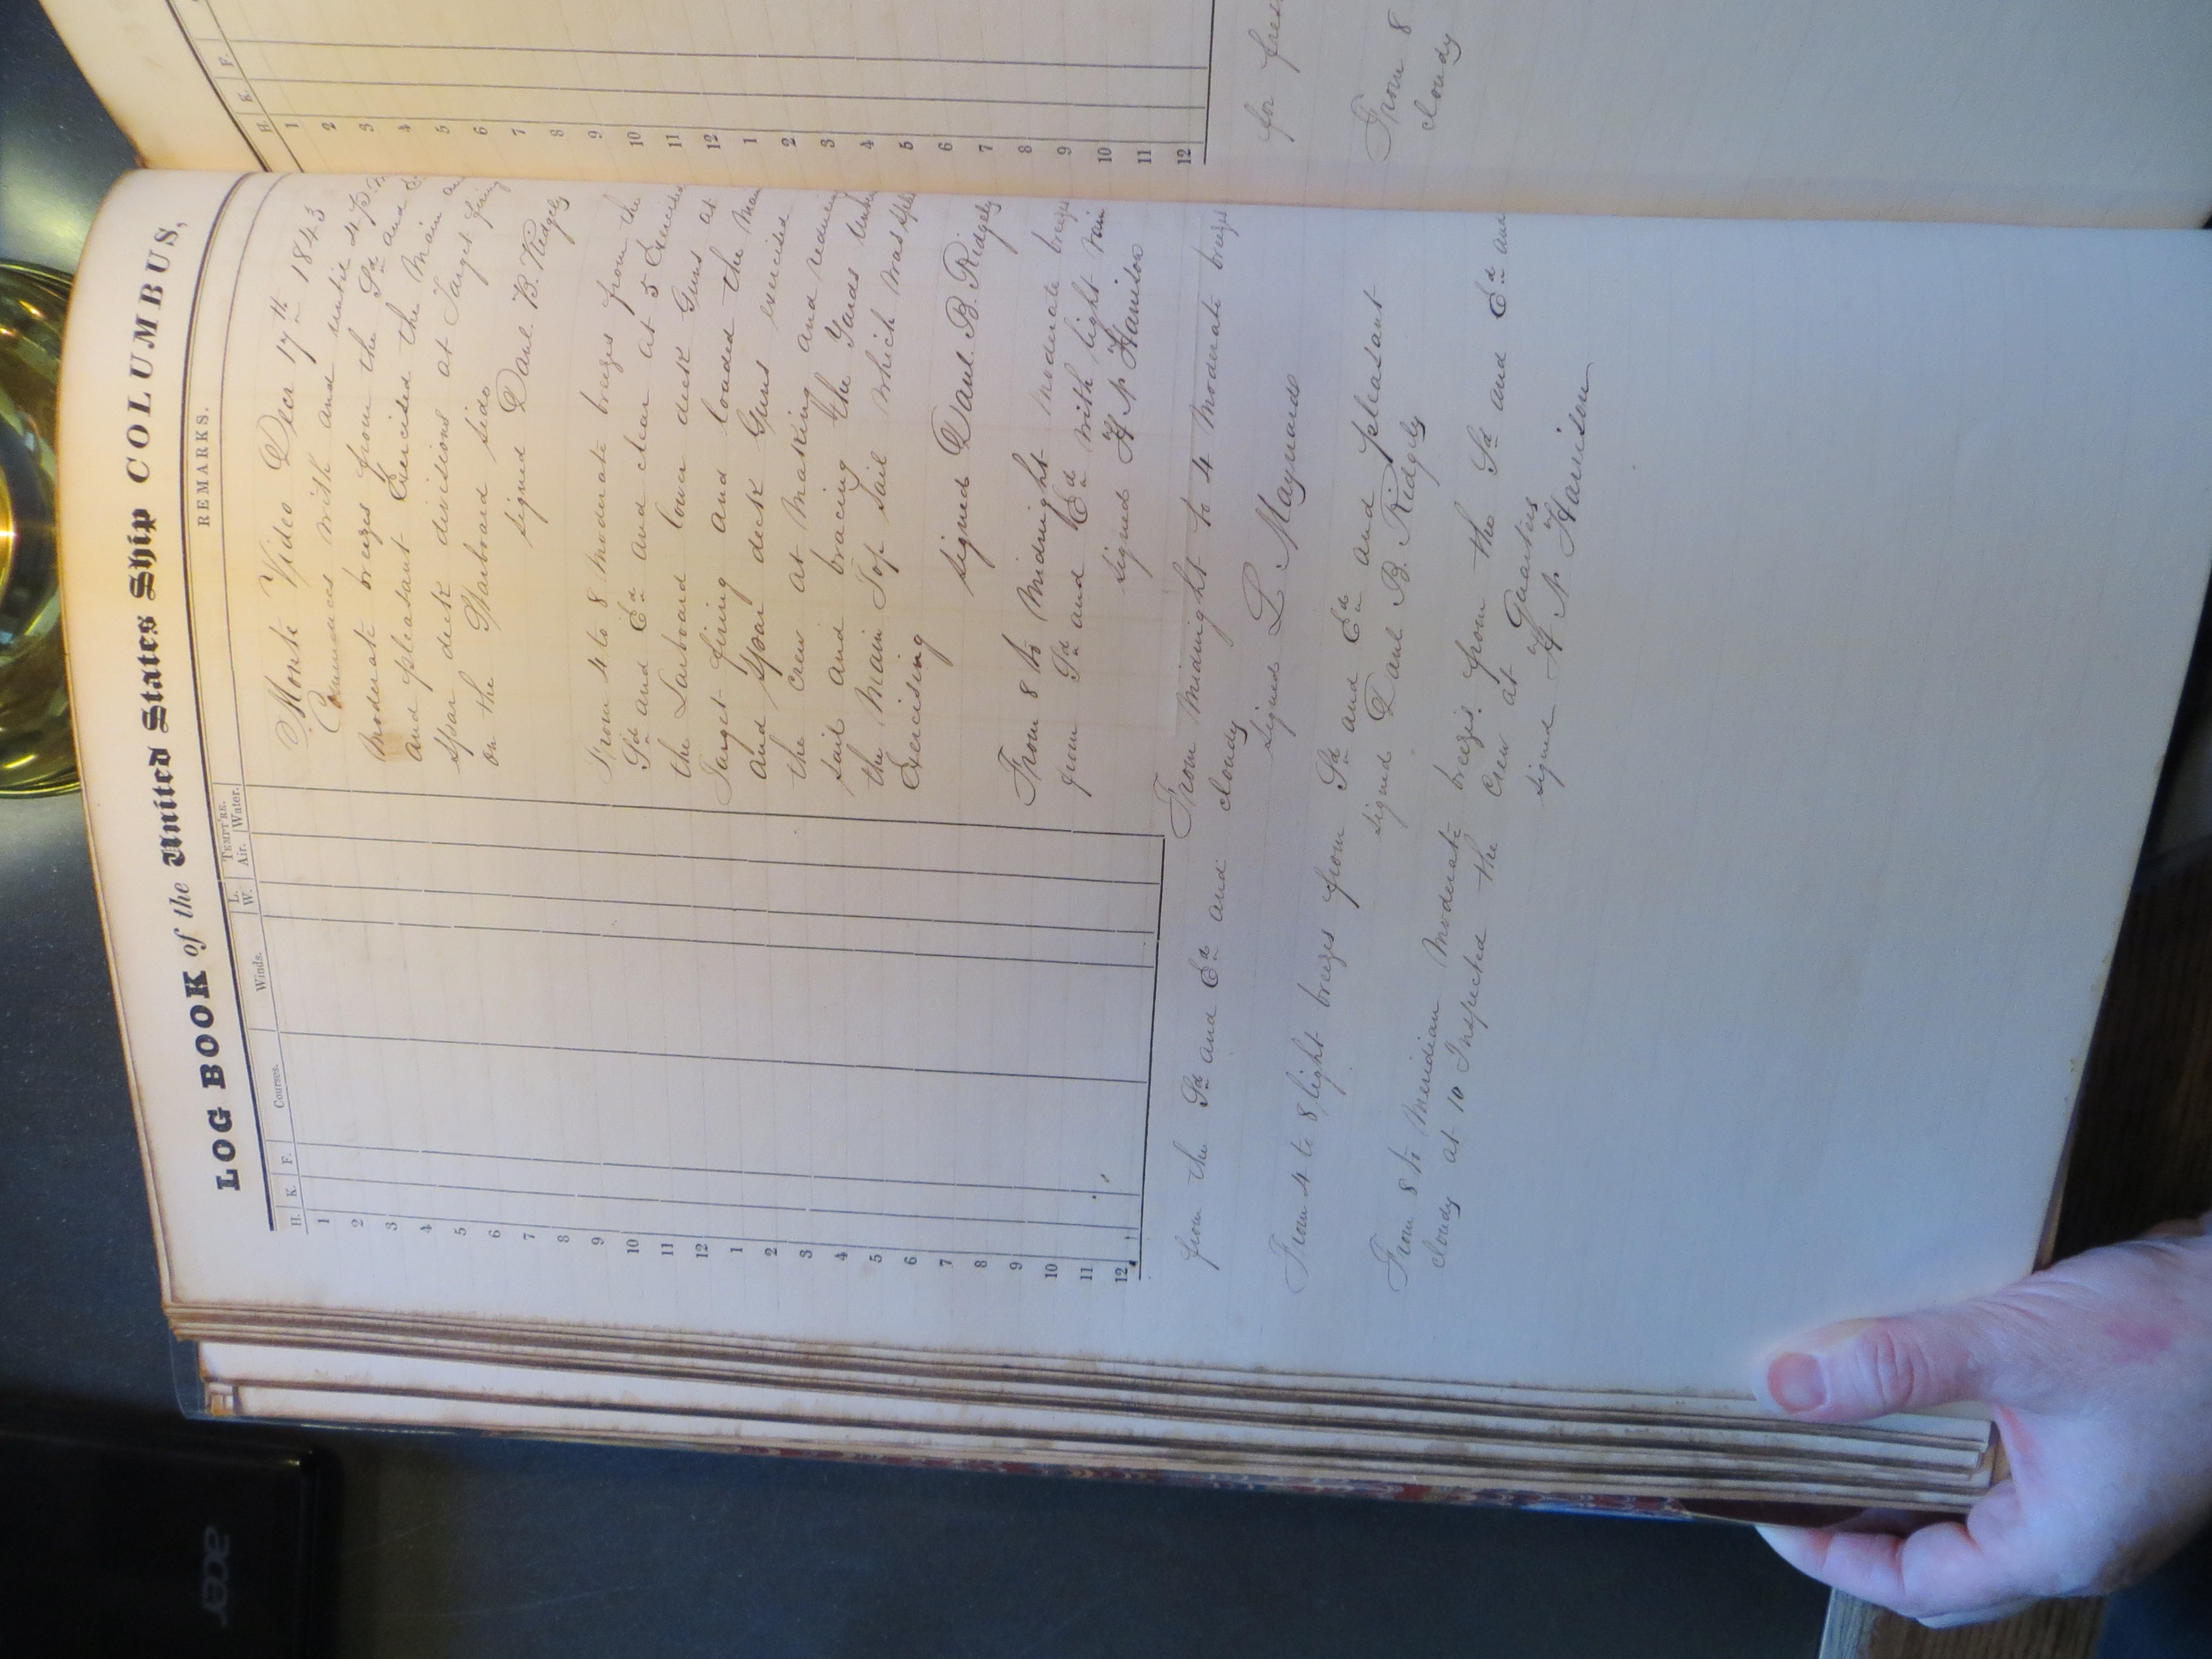 LOG BOOK of the United States Ship COLUMBUS,
H. K. F. Courses. Winds. L. W. TEMPT'RE. Air. Water. REMARKS.
Monte Video Decr 17th 1843
Commences with and until 4 P.M.
Moderate breezes from the Sd and
and pleasant Exercised the Main
Spar deck divisions at Target firing
on the Starboard side
signed Danl. B. Ridgely
From 4 to 8 Moderate breezes from the
Sd and Ed and clear at 5 Exercised
the Larboard lower deck Guns at
Target firing and loaded the Main
and Spar deck Guns exercised
the Crew at Making and reducing
sail and bracing the Yards
the Main Top Sail which was
Exercising
signed Danl. B. Ridgely
From 8 to Midnight Moderate breezes
from Sd and Ed with light rain
signed H N Harrison
From Midnight to 4 Moderate breezes
from the Sd and Ed and cloudy
signed L Maynard
From 4 to 8 light breezes from Sd and Ed and pleasant
signed Danl B. Ridgely
From 8 to Meridian Moderate breezes from the Sd and Ed and
cloudy at 10 Inspected the Crew at Quarters
signed H N Harrison
1
2
3
4
5
6
7
8
9
10
11
12
1
2
3
4
5
6
7
8
9
10
11
12
H. K. F.
1
2
3
4
5
6
7
8
9
10
11
12
1
2
3
4
5
6
7
8
9
10
11
12
for
From 8
cloudy
acer